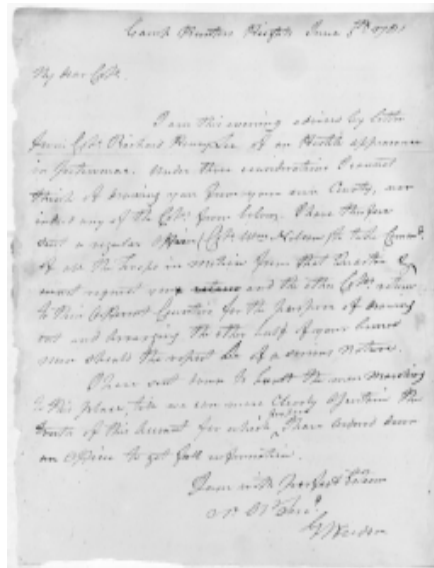 Camp Hunters Heights June 5th 1781
My dear Colo.
I am this evening advised by letter
from Colo. Richard Henry Lee of an Hostile appearance
in Potowmac. Under these considerations I cannot
think of drawing you from your own County, nor
indeed any of the Colos. from below. I have therefore
sent a regular Officer (Colo. Wm. Nelson) to take Command
of all the troops in motion from that Quarter &
must request you and the other Colos. return
to their different Counties for the purpose of drawing
out and arranging the other half of your
men should the report be of a serious nature.
I have sent down to the men marching
to this place, till we can more clearly ascertain the
truth of this Account for which purpose I have ordered down
an Officer to get full information.
I am with perfect Esteem
Yr. Ob. Serv.
G Weedon